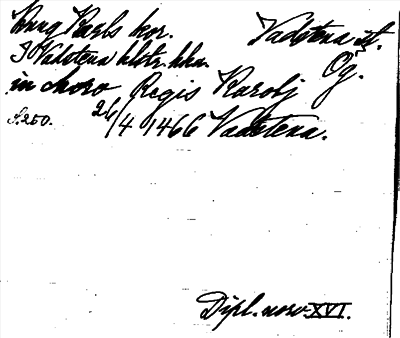 Kung Karls kor. Vadstena st.
I Vadstena klstr. kka. Ög.
in choro Regis Karolj
S. 250. 26/4 1466 Vadstena.
Dipl. norv. XVI.